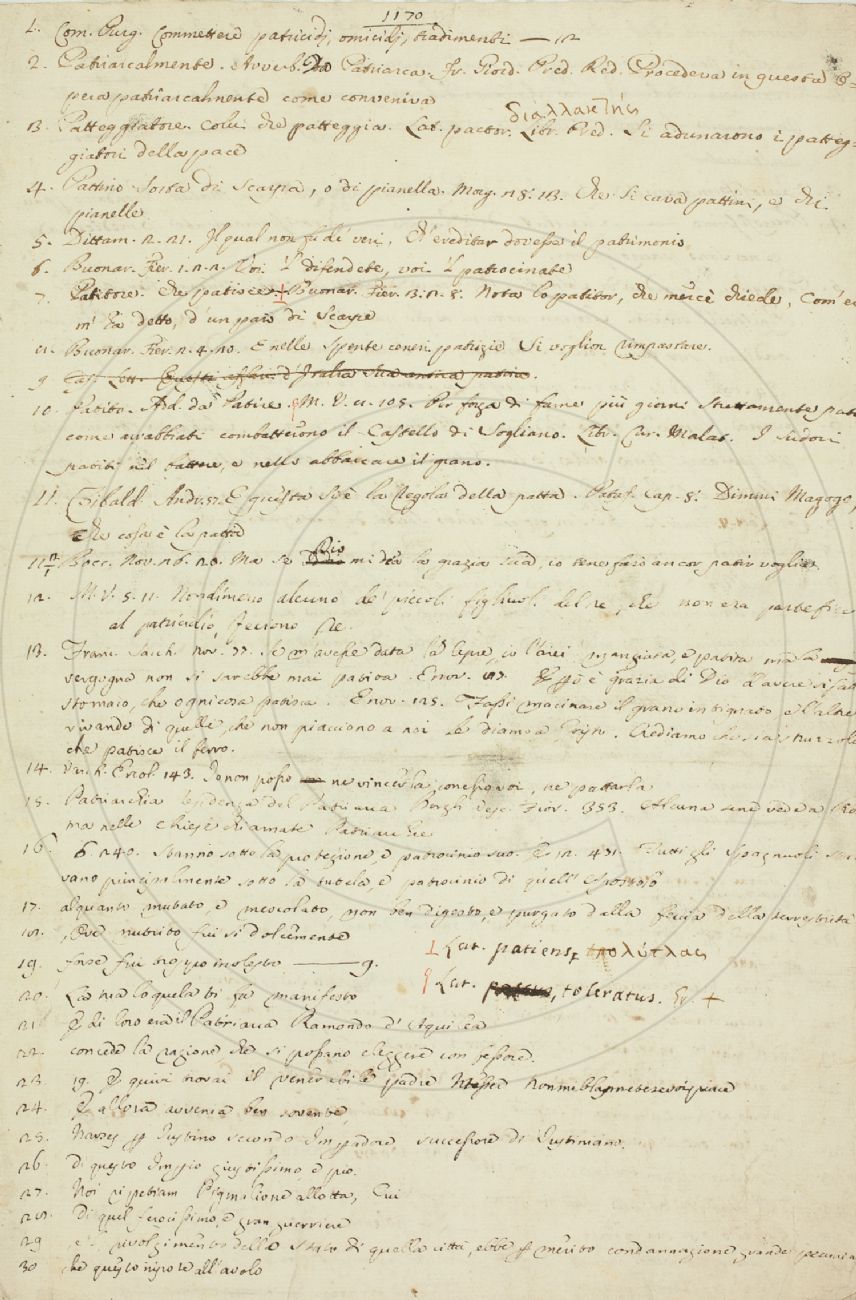 1170
1. Com. Purg. Commettere patricidj, omicidj, tradimenti — 12
2. Patriarcalmente. Avverb. Da Patriarca. Fr. Giord. Pred. Red. Procedeva in questa o=
pera patriarcalmente come conveniva
διαλλακτής
3. Patteggiatore. Colui che patteggia. Lat. pactor. Libr. Pred. Si adunarono i patteg=
giatori della pace
4. Pattino Sorta di Scarpa, o di pianella. Morg. 18. 13. Che si cava pattini, e chi
pianelle
5. Dittam. 2. 21. Il qual non fu de' veri, Ch' ereditar dovesse il patrimonio
6. Buonar. Fier. 1. 2. 2. Voi 'l difendete, voi 'l patrocinate
7. Patitore. Che patisce. Buonar. Fier. 3. 2. 8. Nota lo patitor, che mercè chiede, Com' e
m' ha detto, d' un paio di Scarpe
8. Buonar. Fier. 2. 4. 20. E nelle spente ceneri patrizie Si voglion rimpastare.
9
10. Patito. Ad. da Patire. M. V. 8. 105. Per forza di fame più giorni strettamente pati
come arrabbiati combatterono il Castello di Sogliano. Libr. Cur. Malat. I sudori
patiti nel battere, e nello abbarcare il grano.
11. Tibald. Andr. 57. E questa si è la regola della patta. Pataf. cap. 8. Dimmi Magogo,
che cosa è la patta
Bocc. Nov. 26. 20. Ma se Dio mi dea la grazia sua, io tene farò ancor patir voglia
12. M. V. 5. 11. Nondimeno alcuno de' piccoli figliuoli del re, che non era partefice
al patricidio, feciono Re
13. Franc. Sacch. nov. 77. Se m' avesse data la lepre, io l' arei mangiata, e patita ma la
vergogna non si sarebbe mai patita. E nov. Esso è grazia di Dio d' avere sì fatto
stomaco, che ogni cosa patisca. E nov. 125. Fassi macinare il grano intignato e l' altre
vivande di quelle, che non piacciono a noi le diamo a Cristo. Crediamo che sia struzzolo
che patisce il ferro.
14. Varch. Ercol. 143. Io non posso ne vincerla con esso voi, ne pattarla
15. Patriarchia residenza del Patriarca Borgh. Vesc. Fior. 353. Alcuna sene vede a Ro
ma nelle Chiese chiamate Patriarchie
16. 6. 240. Stanno sotto la protezione, e patrocinio suo. E 12. 431. Tutti gli Spagnuoli sta
vano principalmente sotto la tutela, e patrocinio di quell' Apostolo
17. alquanto mutato, e mescolato, non ben digesto, e purgato dalla feccia della terrestrità
18. , Ove nutrito fui sì dolcemente
Lat. patiens, πολύτλας
19. forse fui troppo molesto — 9.
Lat. toleratus. Gr. +
20. La tua loquela ti fa manifesto
21 E di loro era il Patriarca Ramondo d' Aquilea
22. concede la ragione che si possano eleggere confessore.
23 19. E quivi trovai il venerabile padre Messer
24. E allora avvenia ben sovente
25. Narses per Justino secondo Imperadore, successore di Justiniano.
26. Di questo Impio giustissimo, e pio.
27. Noi ripetiam Pigmalione allotta, Cui
28. Di quel ferocissimo, e gran guerriere
29 e 'l rivolgimento dello stato di quella città, ebbe per merito condannagione grande pecunia
30 che questo nipote all' avolo